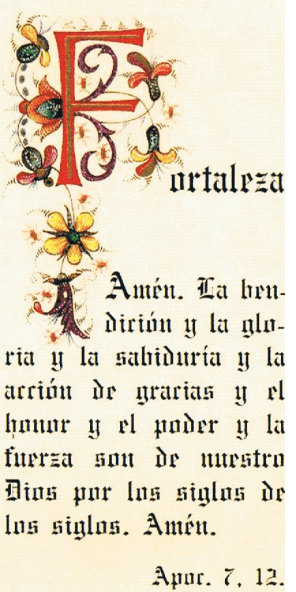 Fortaleza
Amén. La ben-
dición y la glo-
ria y la sabiduría y la
acción de gracias y el
honor y el poder y la
fuerza son de nuestro
Dios por los siglos de
los siglos. Amén.
Apoc. 7, 12.